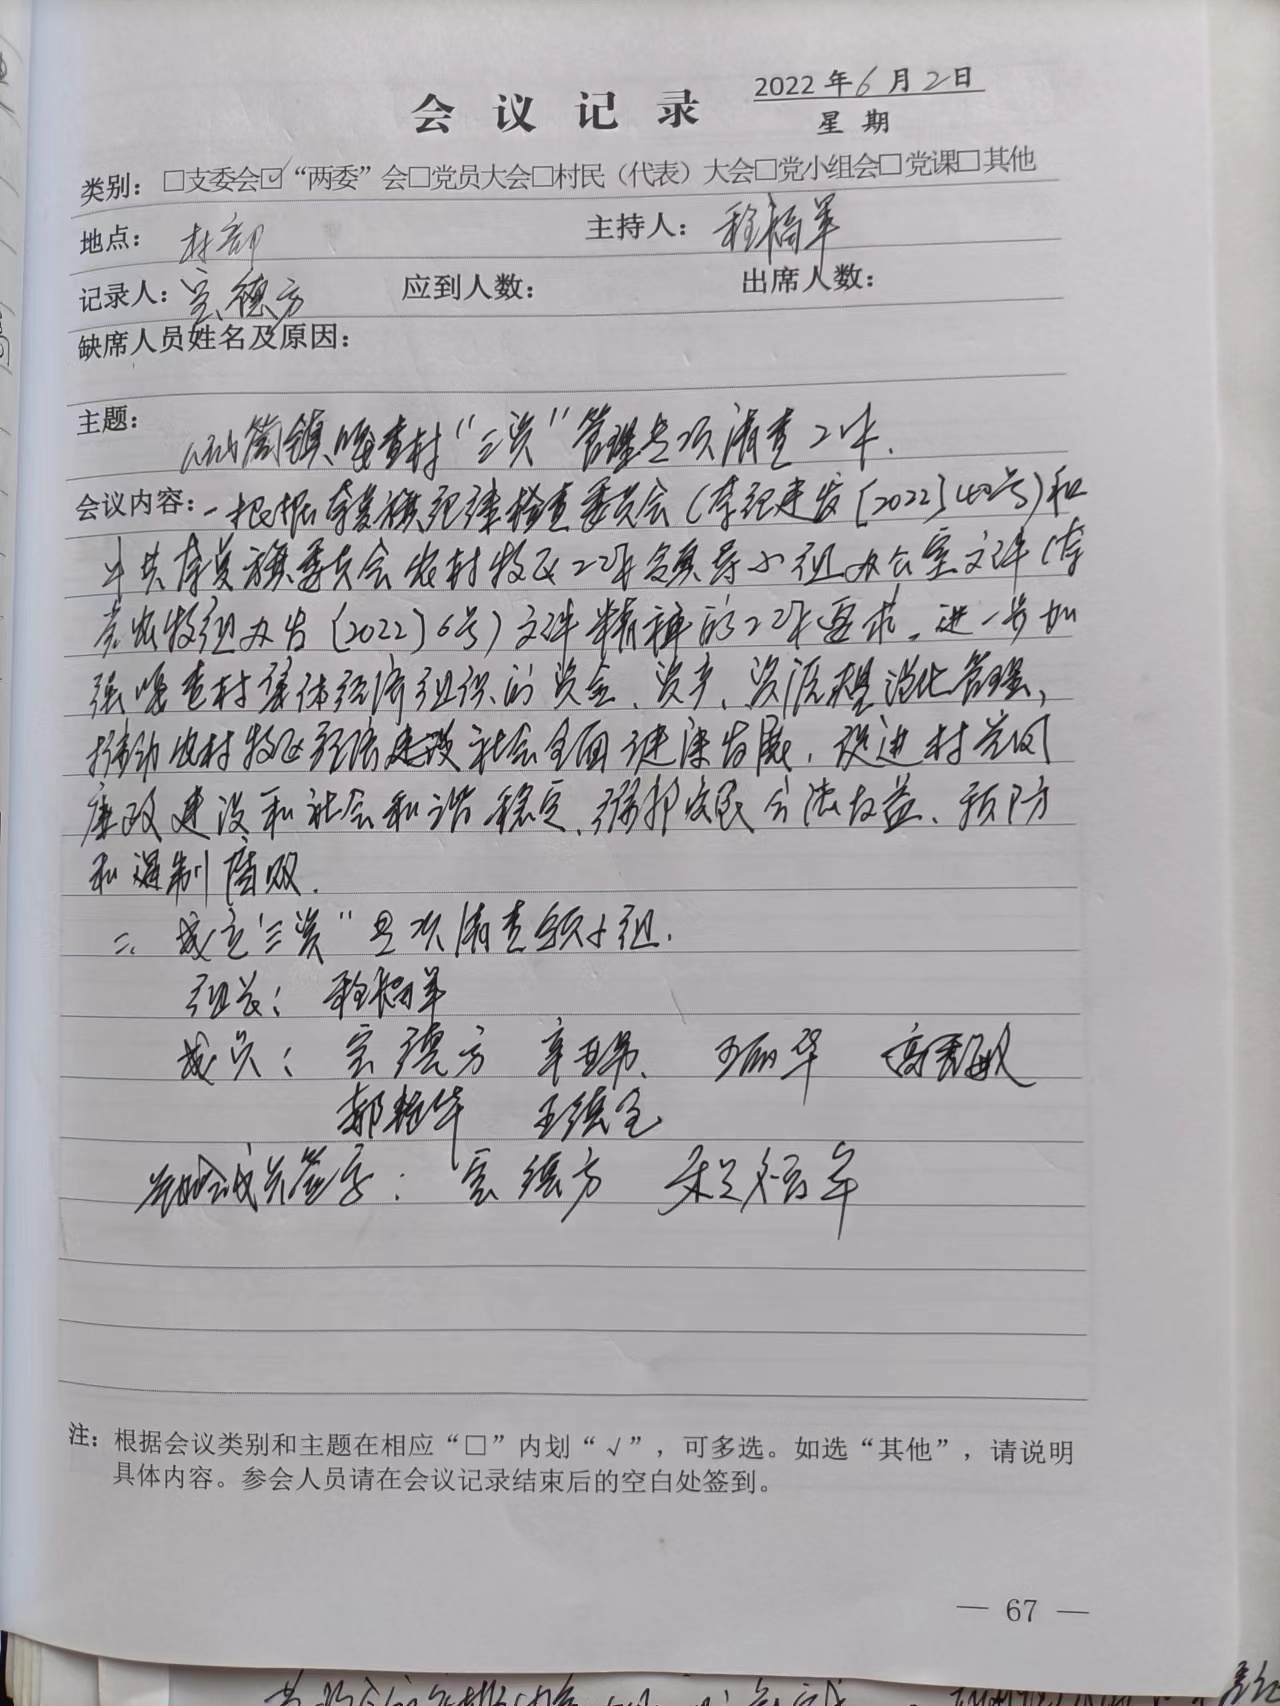 2022年6月2日
会议记录
星期
类别：□支委会☑“两委”会□党员大会□村民（代表）大会□党小组会□党课□其他
地点：村部 主持人：程福军
记录人：宗德方 应到人数： 出席人数：
缺席人员姓名及原因：
主题：
镇 村“三资”管理专项清查工作.
会议内容：一根据 旗纪律检查委员会( 纪建发[2022]42号)和
中共 旗委员会农村牧区工作领导小组办公室文件(
党农牧组办发[2022]6号)文件精神的工作要求,进一步加
强 村集体经济组织的资金、资产、资源规范化管理,
推动农村牧区经济建设社会全面健康发展,促进村党风
廉政建设和社会和谐稳定, 农民合法权益、预防
和遏制腐败.
二、成立“三资”专项清查领小组.
组长：程福军
成员：宗德方 王丽华 高秀敏
郝艳华
成员签字：宗德方
注：根据会议类别和主题在相应“□”内划“√”，可多选。如选“其他”，请说明
具体内容。参会人员请在会议记录结束后的空白处签到。
— 67 —